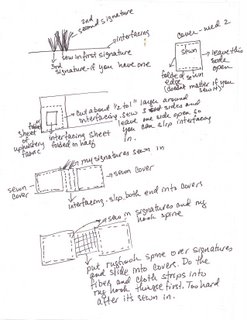 2nd
second signature
interfacing
sew in first signature
3rd
signature - if you have one
cover - need 2
sewn
leave this
side
open
folded or sewn
edge
(doesn't matter if you
sew it)
sheet
of
upholstery
fabric
fold
cut about "2 to 1" layer around
interfacing. sew 3 sides and
leave one side open so
you can slip interfacing
in
interfacing sheet
folded in half
my signatures sewn in
sewn
cover
sewn cover
interfacing. slip both end into covers
sewn in signatures and my
book spine
put my book spine over signatures
and slide into covers. Do the
fibers and cloth strips into
my book things first. Too hard
after its sewn in.